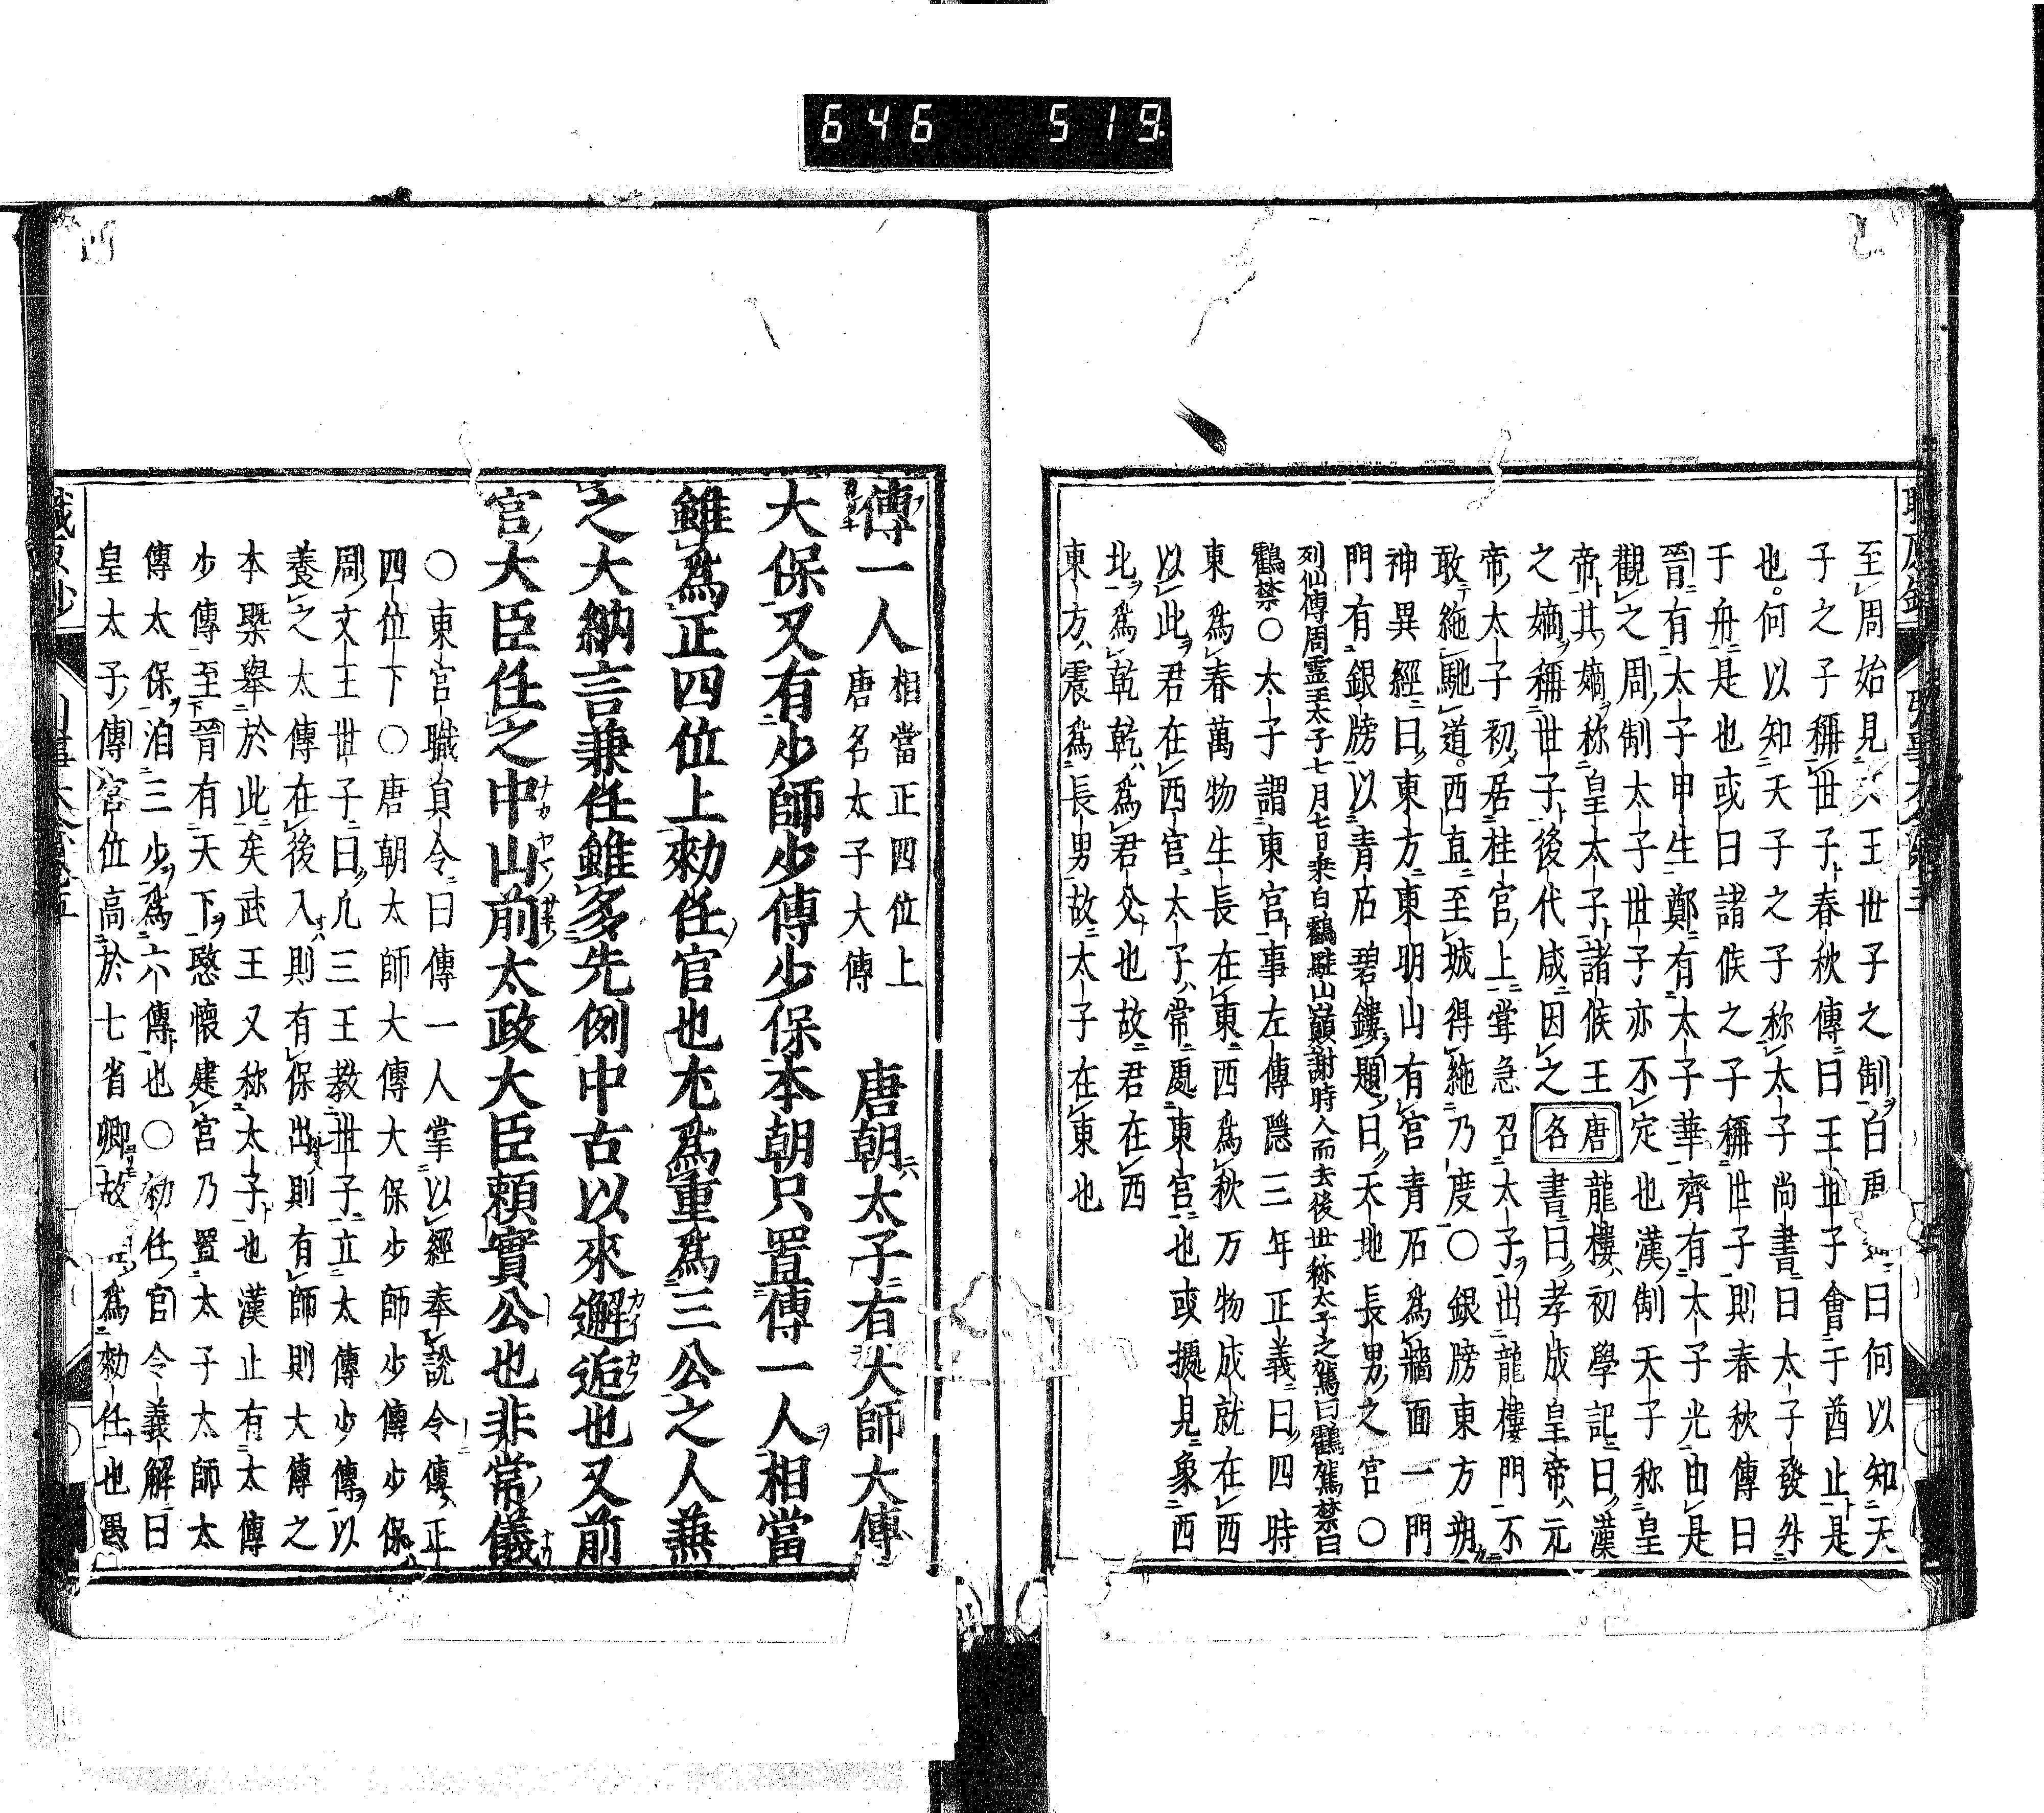 646 519
至周始見文王世子之制白虎通曰何以知天
子之子稱世子春秋傳曰王世子會于酋止是
也何以知天子之子称太子尚書曰太子發舛
于舟是也或曰諸侯之子稱世子則春秋傳曰
晉有太子申生鄭有太子華齊有太子光由是
觀之周制太子世子亦不定也漢制天子称皇
帝其嫡称皇太子諸侯王
之嫡稱世子後代咸因之
唐名
龍樓初學記曰漢
書曰孝成皇帝元
帝太子初居桂宮上甞急召太子出龍樓門不
敢絁馳道西直至城得絁乃度〇銀牓東方朔
神異經曰東方東明山有宮青石爲牆面一門
門有銀牓以青石碧鏤題曰天地長男之宮〇
列仙傳周霊王太子七月七日乘白鸖駐山巔謝時人而去後世称太子之駕曰鸖駕禁曰
鸖禁〇太子謂東宮事左傳隱三年正義曰四時
東爲春萬物生長在東西爲秋万物成就在西
以此君在西宮太子常處東宮也或據見象西
北爲乾乾爲君父也故君在西
東方震爲長男故太子在東也
傅一人
相當正四位上
唐名太子大傅
唐朝太子有大師大傅
大保又有少師少傅少保本朝只置傅一人相當
雖爲正四位上勅任官也尤爲重爲三公之人兼
之大納言兼任雖多先例中古以來邂逅也又前
官大臣任之中山前太政大臣頼實公也非常儀
〇東宮職員令曰傅一人掌以經奉説令傅正
四位下〇唐朝太師大傅大保少師少傅少保
周文王世子曰凢三王教世子立太傅少傅以
養之太傅在後入則有保出則有師則大傅之
本槩舉於此矣武王又称太子也漢止有太傅
少傅至晉有天下愍懷建宮乃置太子太師太
傅太保洎三少爲六傅也〇初任官令義解曰
皇太子傅官位高於七省卿故爲勅任也愚